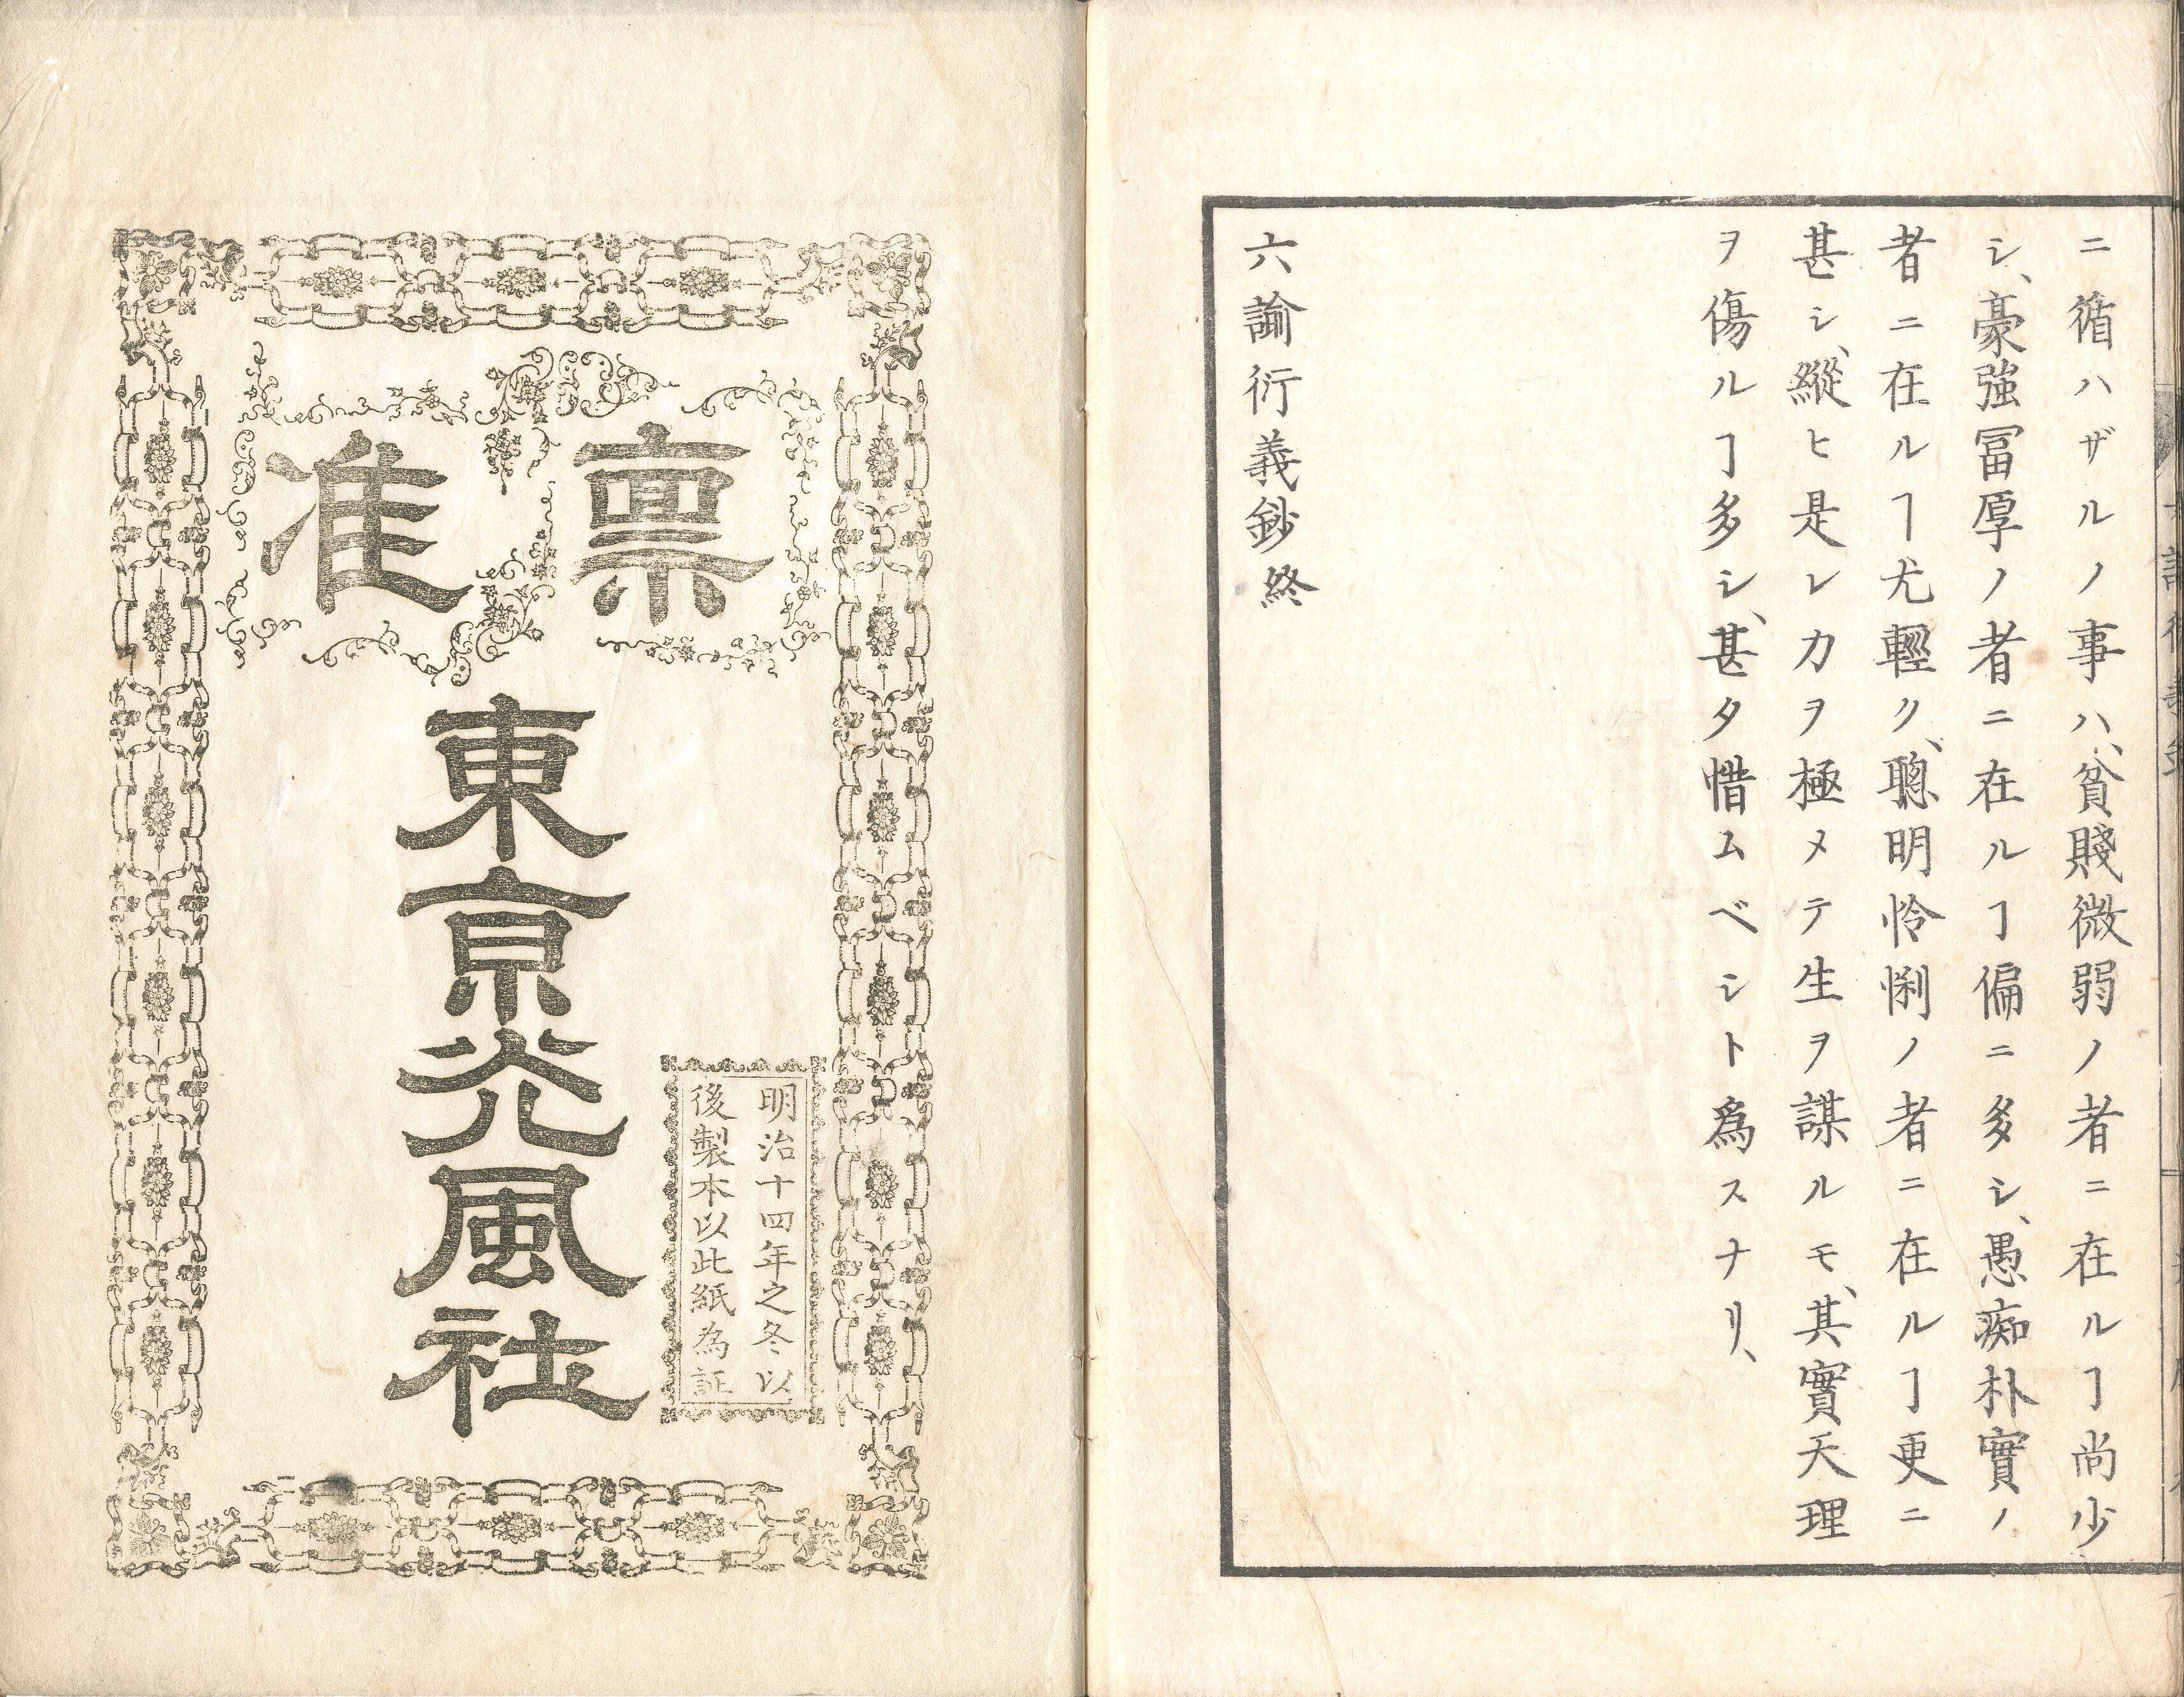 ニ循ハザルノ事ハ、貧賤微弱ノ者ニ在ルヿ尚少
シ、豪強冨厚ノ者ニ在ルヿ偏ニ多シ、愚痴朴實ノ
者ニ在ルヿ尤輕ク、聰明怜悧ノ者ニ在ルヿ更ニ
甚シ、縱ヒ是レ力ヲ極メテ生ヲ謀ルモ、其實天理
ヲ傷ルヿ多シ、甚タ惜ムベシト爲スナリ、
六諭衍義鈔終
稟准
東京光風社
明治十四年之冬以
後製本以此紙為証